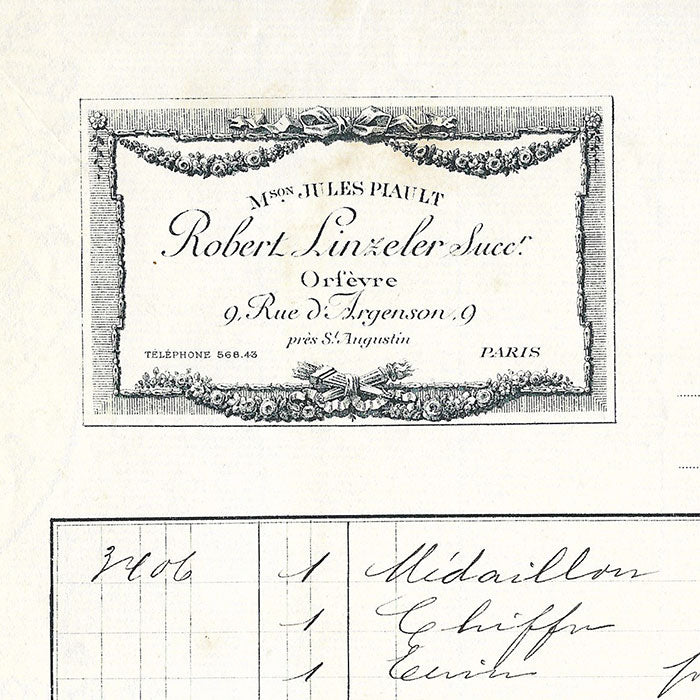 Mson JULES PIAULT
Robert Linzeler Succr
Orfèvre
9, Rue d'Argenson, 9
près St Augustin
TÉLÉPHONE 568.43 PARIS
3406 1 Médaillon
1 Chiffre
1 Ecrin